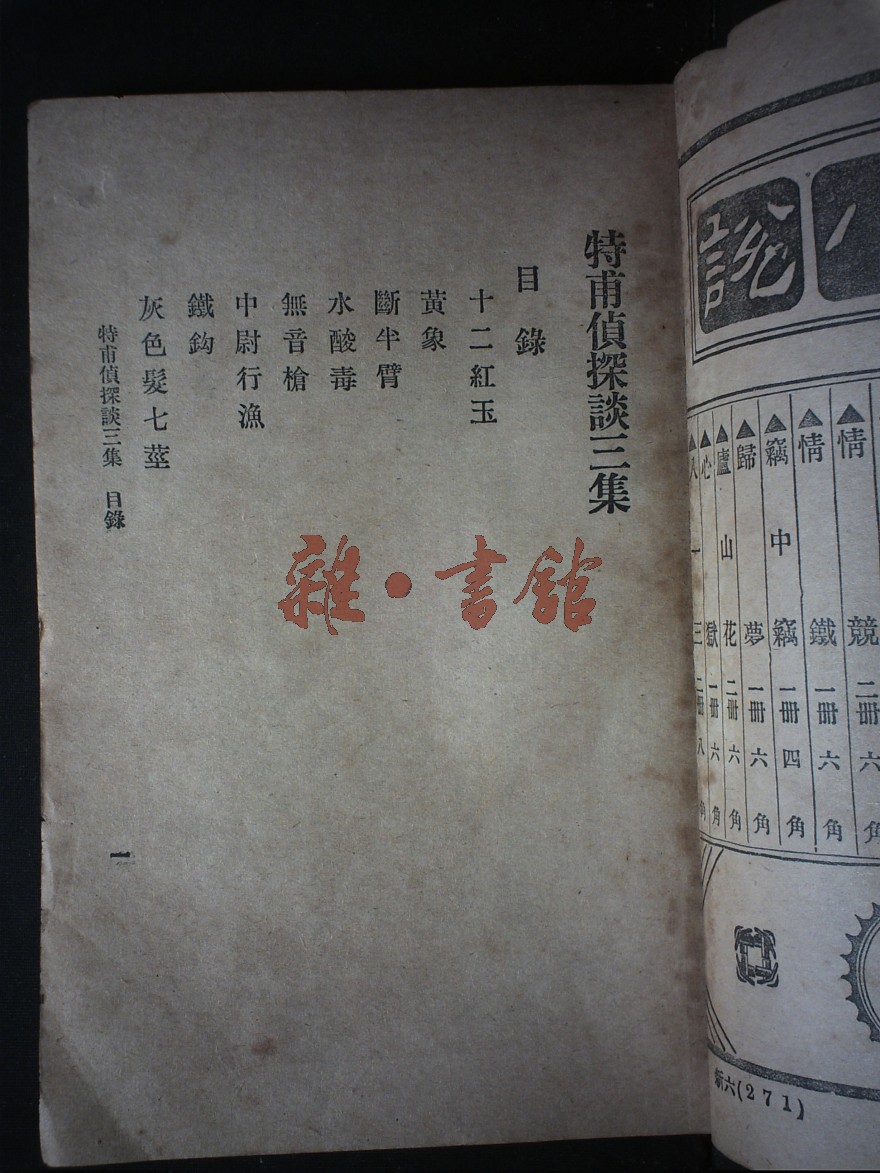 說小
情競 二冊六角
情鐵 一冊六角
竊中竊 一冊四角
歸夢 一冊六角
廬山花 二冊六角
心獄 一冊六角
三 二冊八角
新六(271)
特甫偵探談三集
目錄
十二紅玉
黃象
斷半臂
水酸毒
無音槍
中尉行漁
鐵鈎
灰色髮七莖
特甫偵探談三集 目錄
一
雜·書館